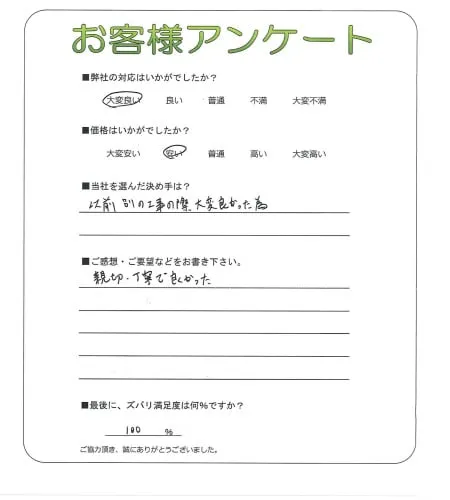 お客様アンケート
■弊社の対応はいかがでしたか?
大変良い 良い 普通 不満 大変不満
■価格はいかがでしたか?
大変安い 安い 普通 高い 大変高い
■当社を選んだ決め手は?
以前別の工事の際、大変良かった為
■ご感想・ご要望などをお書き下さい。
親切・丁寧で良かった
■最後に、ズバリ満足度は何%ですか?
100 %
ご協力頂き、誠にありがとうございました。